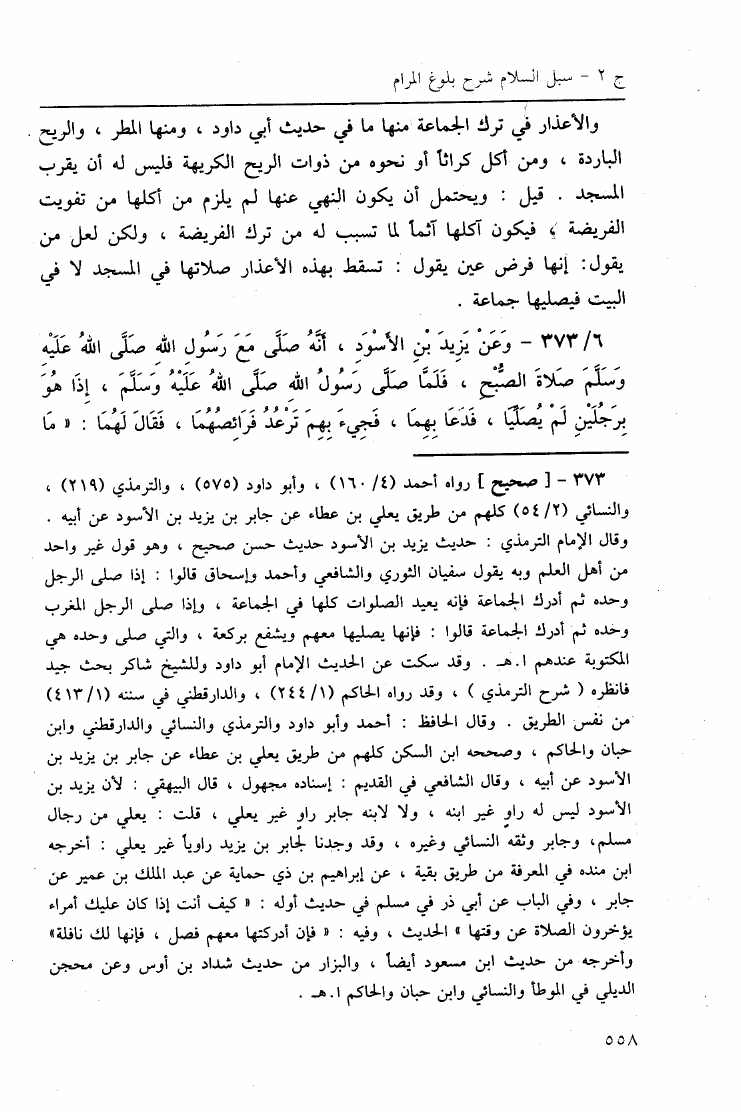 ج ٢ - سبل السلام شرح بلوغ المرام
والأعذار في ترك الجماعة منها ما في حديث أبي داود ، ومنها المطر ، والريح
الباردة ، ومن أكل كراثاً أو نحوه من ذوات الريح الكريهة فليس له أن يقرب
المسجد . قيل : ويحتمل أن يكون النهي عنها لم يلزم من أكلها من تفويت
الفريضة ؛ فيكون آكلها آثماً لما تسبب له من ترك الفريضة ، ولكن لعل من
يقول: إنها فرض عين يقول : تسقط بهذه الأعذار صلاتها في المسجد لا في
البيت فيصليها جماعة .
٦/ ٣٧٣ - وَعَنْ يَزِيدَ بْنِ الأَسْوَدِ ، أَنَّهُ صَلَّى مَعَ رَسُولِ اللهِ صَلَّى اللهُ عَلَيْهِ
وَسَلَّمَ صَلاَةَ الصُّبْحِ ، فَلَمَّا صَلَّى رَسُولُ اللهِ صَلَّى اللهُ عَلَيْهِ وَسَلَّمَ ، إِذَا هُوَ
بِرَجُلَيْنِ لَمْ يُصَلِّيَا ، فَدَعَا بِهِمَا ، فَجِيءَ بِهِمَ تَرْعُدُ فَرَائِصُهُمَا ، فَقَالَ لَهُمَا : « مَا
٣٧٣ - [ صحيح ] رواه أحمد (٤/ ١٦٠) ، وأبو داود (٥٧٥) ، والترمذي (٢١٩) ،
والنسائي (٢/ ٥٤) كلهم من طريق يعلي بن عطاء عن جابر بن يزيد بن الأسود عن أبيه .
وقال الإمام الترمذي : حديث يزيد بن الأسود حديث حسن صحيح ، وهو قول غير واحد
من أهل العلم وبه يقول سفيان الثوري والشافعي وأحمد وإسحاق قالوا : إذا صلى الرجل
وحده ثم أدرك الجماعة فإنه يعيد الصلوات كلها في الجماعة ، وإذا صلى الرجل المغرب
وحده ثم أدرك الجماعة قالوا : فإنها يصليها معهم ويشفع بركعة ، والتي صلى وحده هي
المكتوبة عندهم ا.هـ . وقد سكت عن الحديث الإمام أبو داود وللشيخ شاكر بحث جيد
فانظره ( شرح الترمذي ) ، وقد رواه الحاكم (١/ ٢٤٤) ، والدارقطني في سننه (١/ ٤١٣)
من نفس الطريق . وقال الحافظ : أحمد وأبو داود والترمذي والنسائي والدارقطني وابن
حبان والحاكم ، وصححه ابن السكن كلهم من طريق يعلي بن عطاء عن جابر بن يزيد بن
الأسود عن أبيه ، وقال الشافعي في القديم : إسناده مجهول ، قال البيهقي : لأن يزيد بن
الأسود ليس له راوٍ غير ابنه ، ولا لابنه جابر راوٍ غير يعلي ، قلت : يعلي من رجال
مسلم، وجابر وثقه النسائي وغيره ، وقد وجدنا لجابر بن يزيد راوياً غير يعلي : أخرجه
ابن منده في المعرفة من طريق بقية ، عن إبراهيم بن ذي حماية عن عبد الملك بن عمير عن
جابر ، وفي الباب عن أبي ذر في مسلم في حديث أوله : « كيف أنت إذا كان عليك أمراء
يؤخرون الصلاة عن وقتها » الحديث ، وفيه : « فإن أدركتها معهم فصل ، فإنها لك نافلة»
وأخرجه من حديث ابن مسعود أيضاً ، والبزار من حديث شداد بن أوس وعن محجن
الديلي في الموطأ والنسائي وابن حبان والحاكم ا.هـ .
٥٥٨